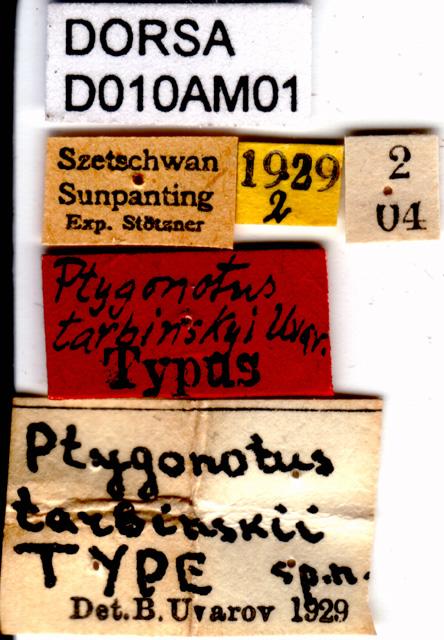 DORSA
D010AM01
Szetschwan
Sunpanting
Exp. Stötzner
1929
2
2
04
Ptygonotus
tarbinskyi Uvar.
Typus
Ptygonotus
tarbinskii
TYPE sp.n.
Det. B. Uvarov 1929